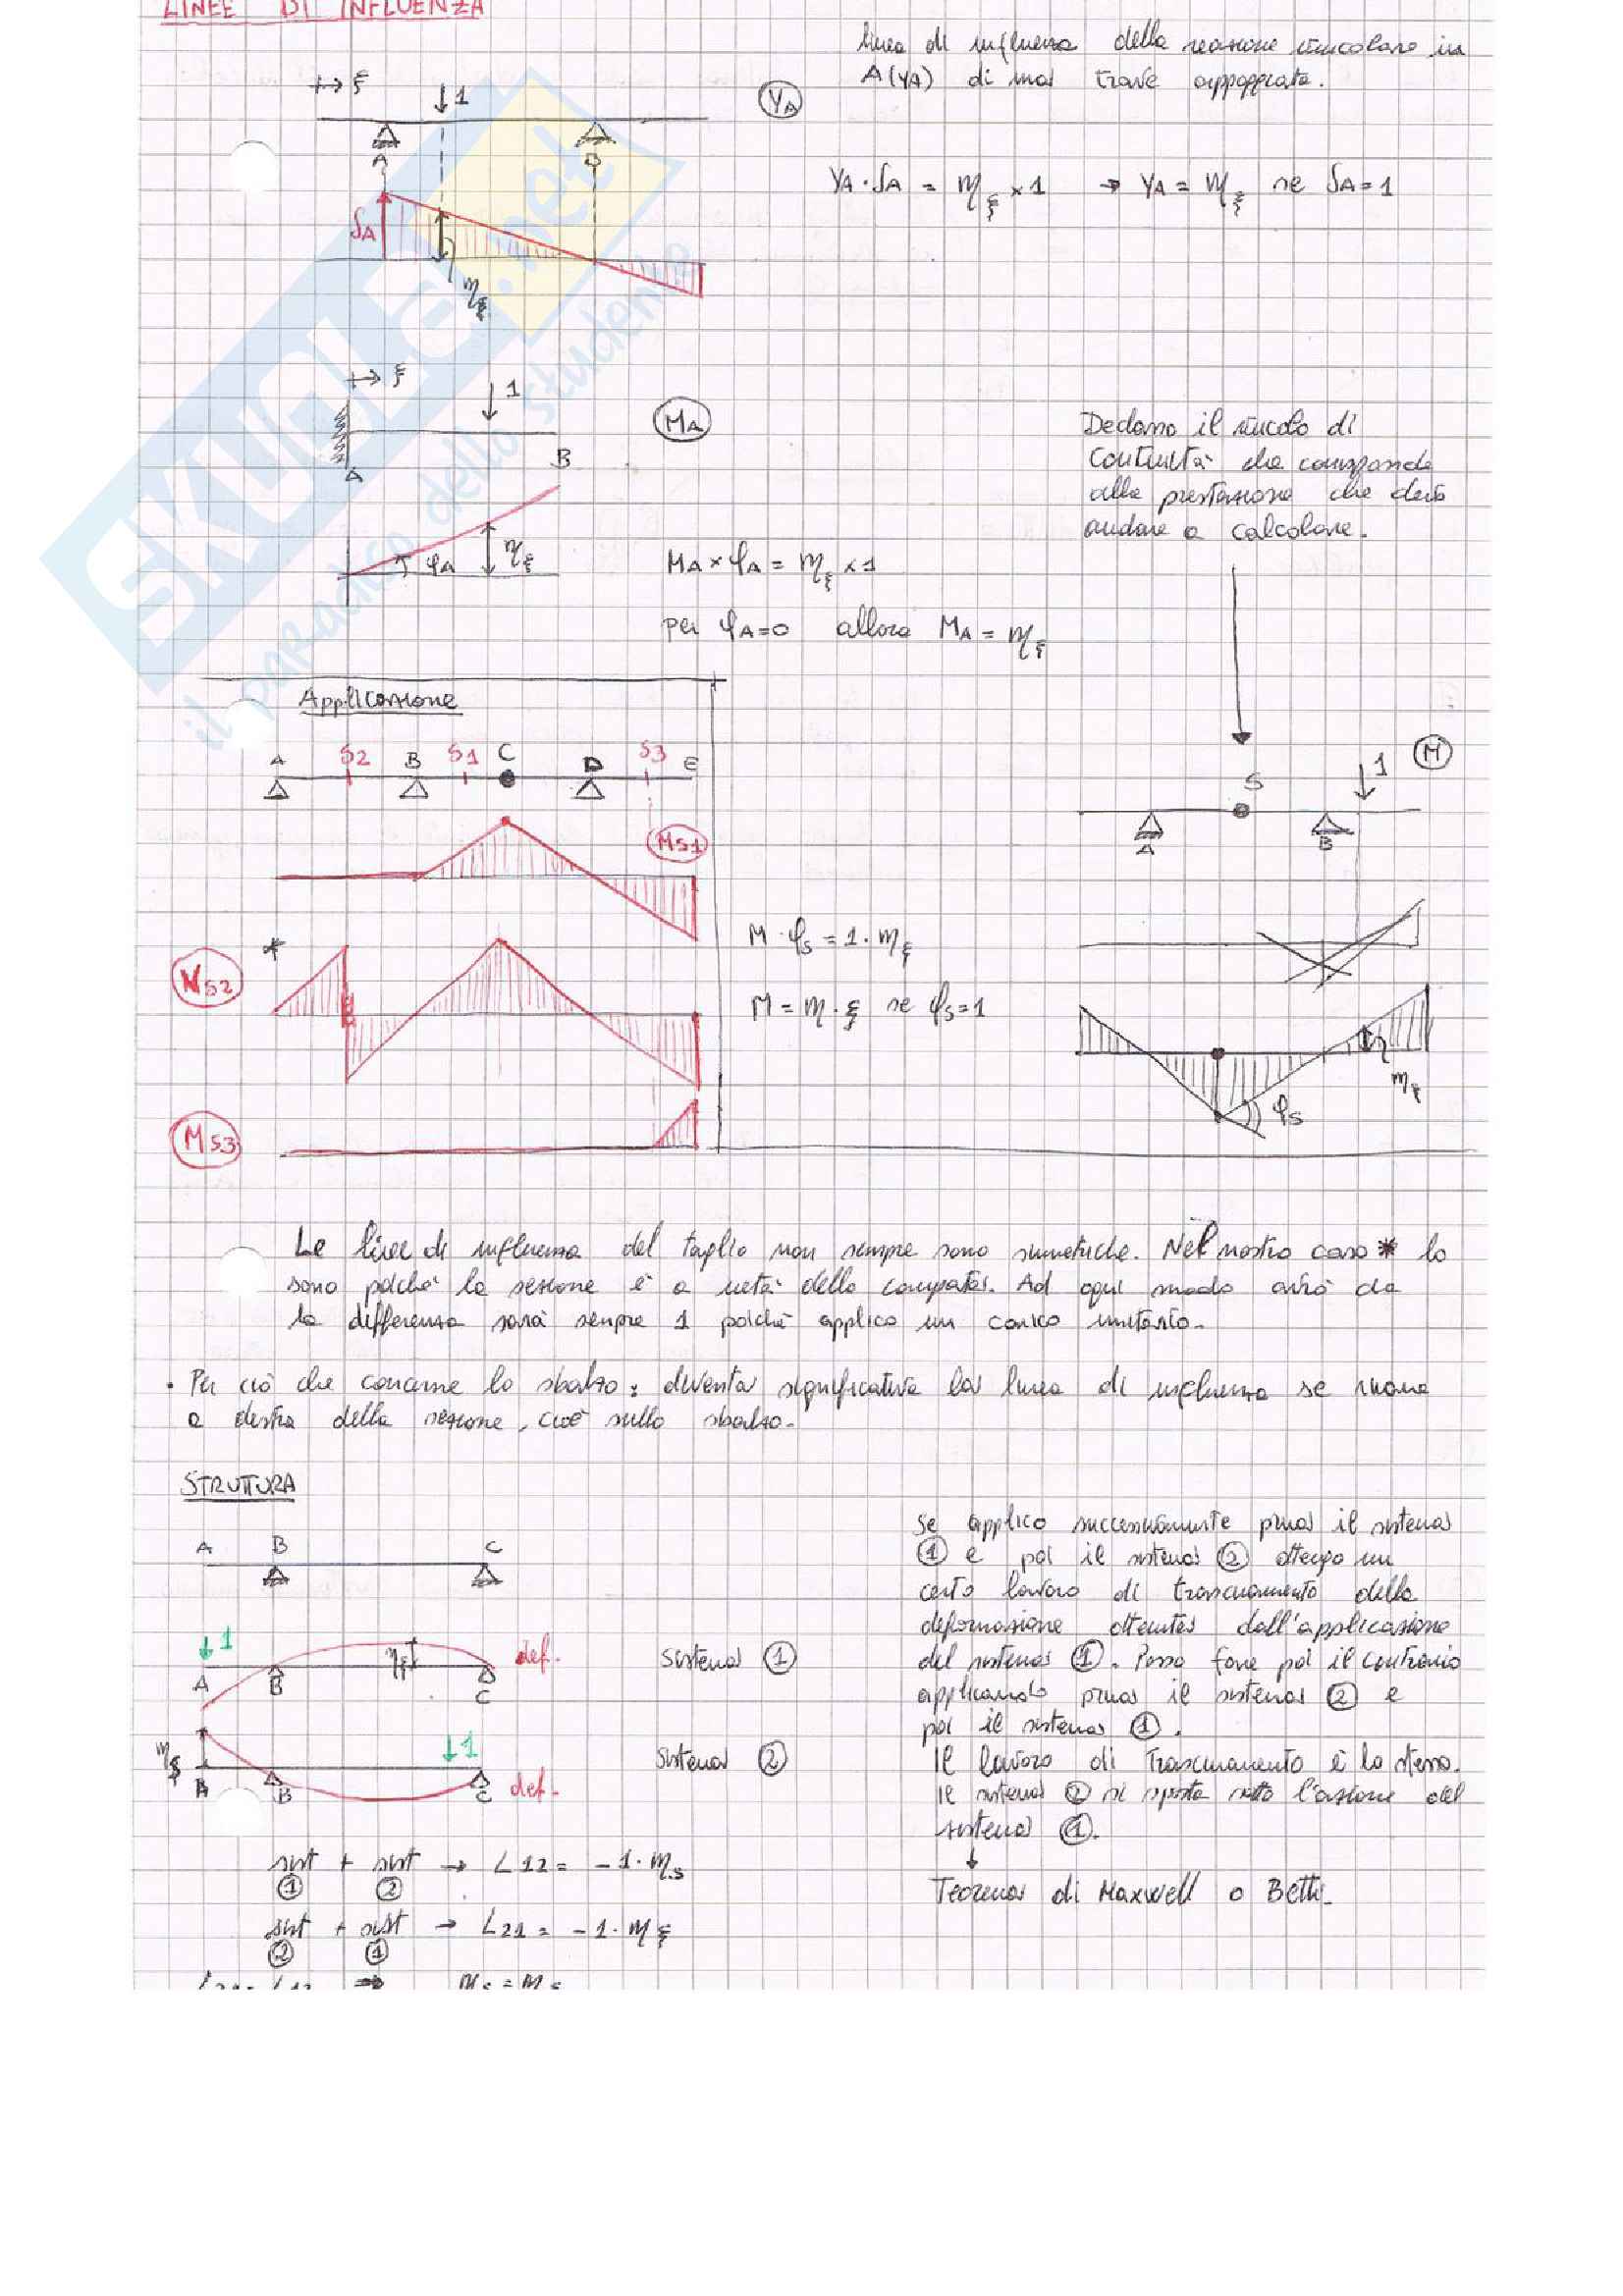 LINEE DI INFLUENZA
linea di influenza della reazione vincolare in
A (YA) di una trave appoggiata.
ξ
1
YA
A
B
YA · δA = ηξ × 1 → YA = ηξ se δA = 1
δA
ηξ
ξ
1
MA
A
B
φA
ηξ
MA × φA = ηξ × 1
per φA = 0 allora MA = ηξ
Declasso il vincolo di
continuità che corrisponde
alla prestazione che devo
andare a calcolare.
Applicazione
A S2 B S1 C D S3 E
MS1
VS2
*
MS3
M
1
S
A
B
M · φS = 1 · ηξ
M = η · ξ se φS = 1
ηξ
φS
Le linee di influenza del taglio non sempre sono simmetriche. Nel nostro caso * lo
sono poiché la sezione è a metà della campata. Ad ogni modo avrò che
la differenza sarà sempre 1 poiché applico un carico unitario.
• Per ciò che concerne lo sbalzo: diventa significativa la linea di influenza se sono
a destra della sezione, cioè sullo sbalzo.
STRUTTURA
A B C
1
A
B
ηξ
C
def.
sistema 1
1
ηξ
A
B
C
def.
sistema 2
Se applico successivamente prima il sistema
1 e poi il sistema 2 ottengo un
certo lavoro di trascinamento della
deformazione ottenuta dall'applicazione
del sistema 1. Posso fare poi il contrario
applicando prima il sistema 2 e
poi il sistema 1.
Il lavoro di trascinamento è lo stesso.
Il sistema 2 si sposta sotto l'azione del
sistema 1.
↓
Teorema di Maxwell o Betti.
sist + sist → L12 = -1 · ηs
1 2
sist + sist → L21 = -1 · ηξ
2 1
L21 = L12 → ηs = ηξ
SKUOLA.net
il paradiso dello studente